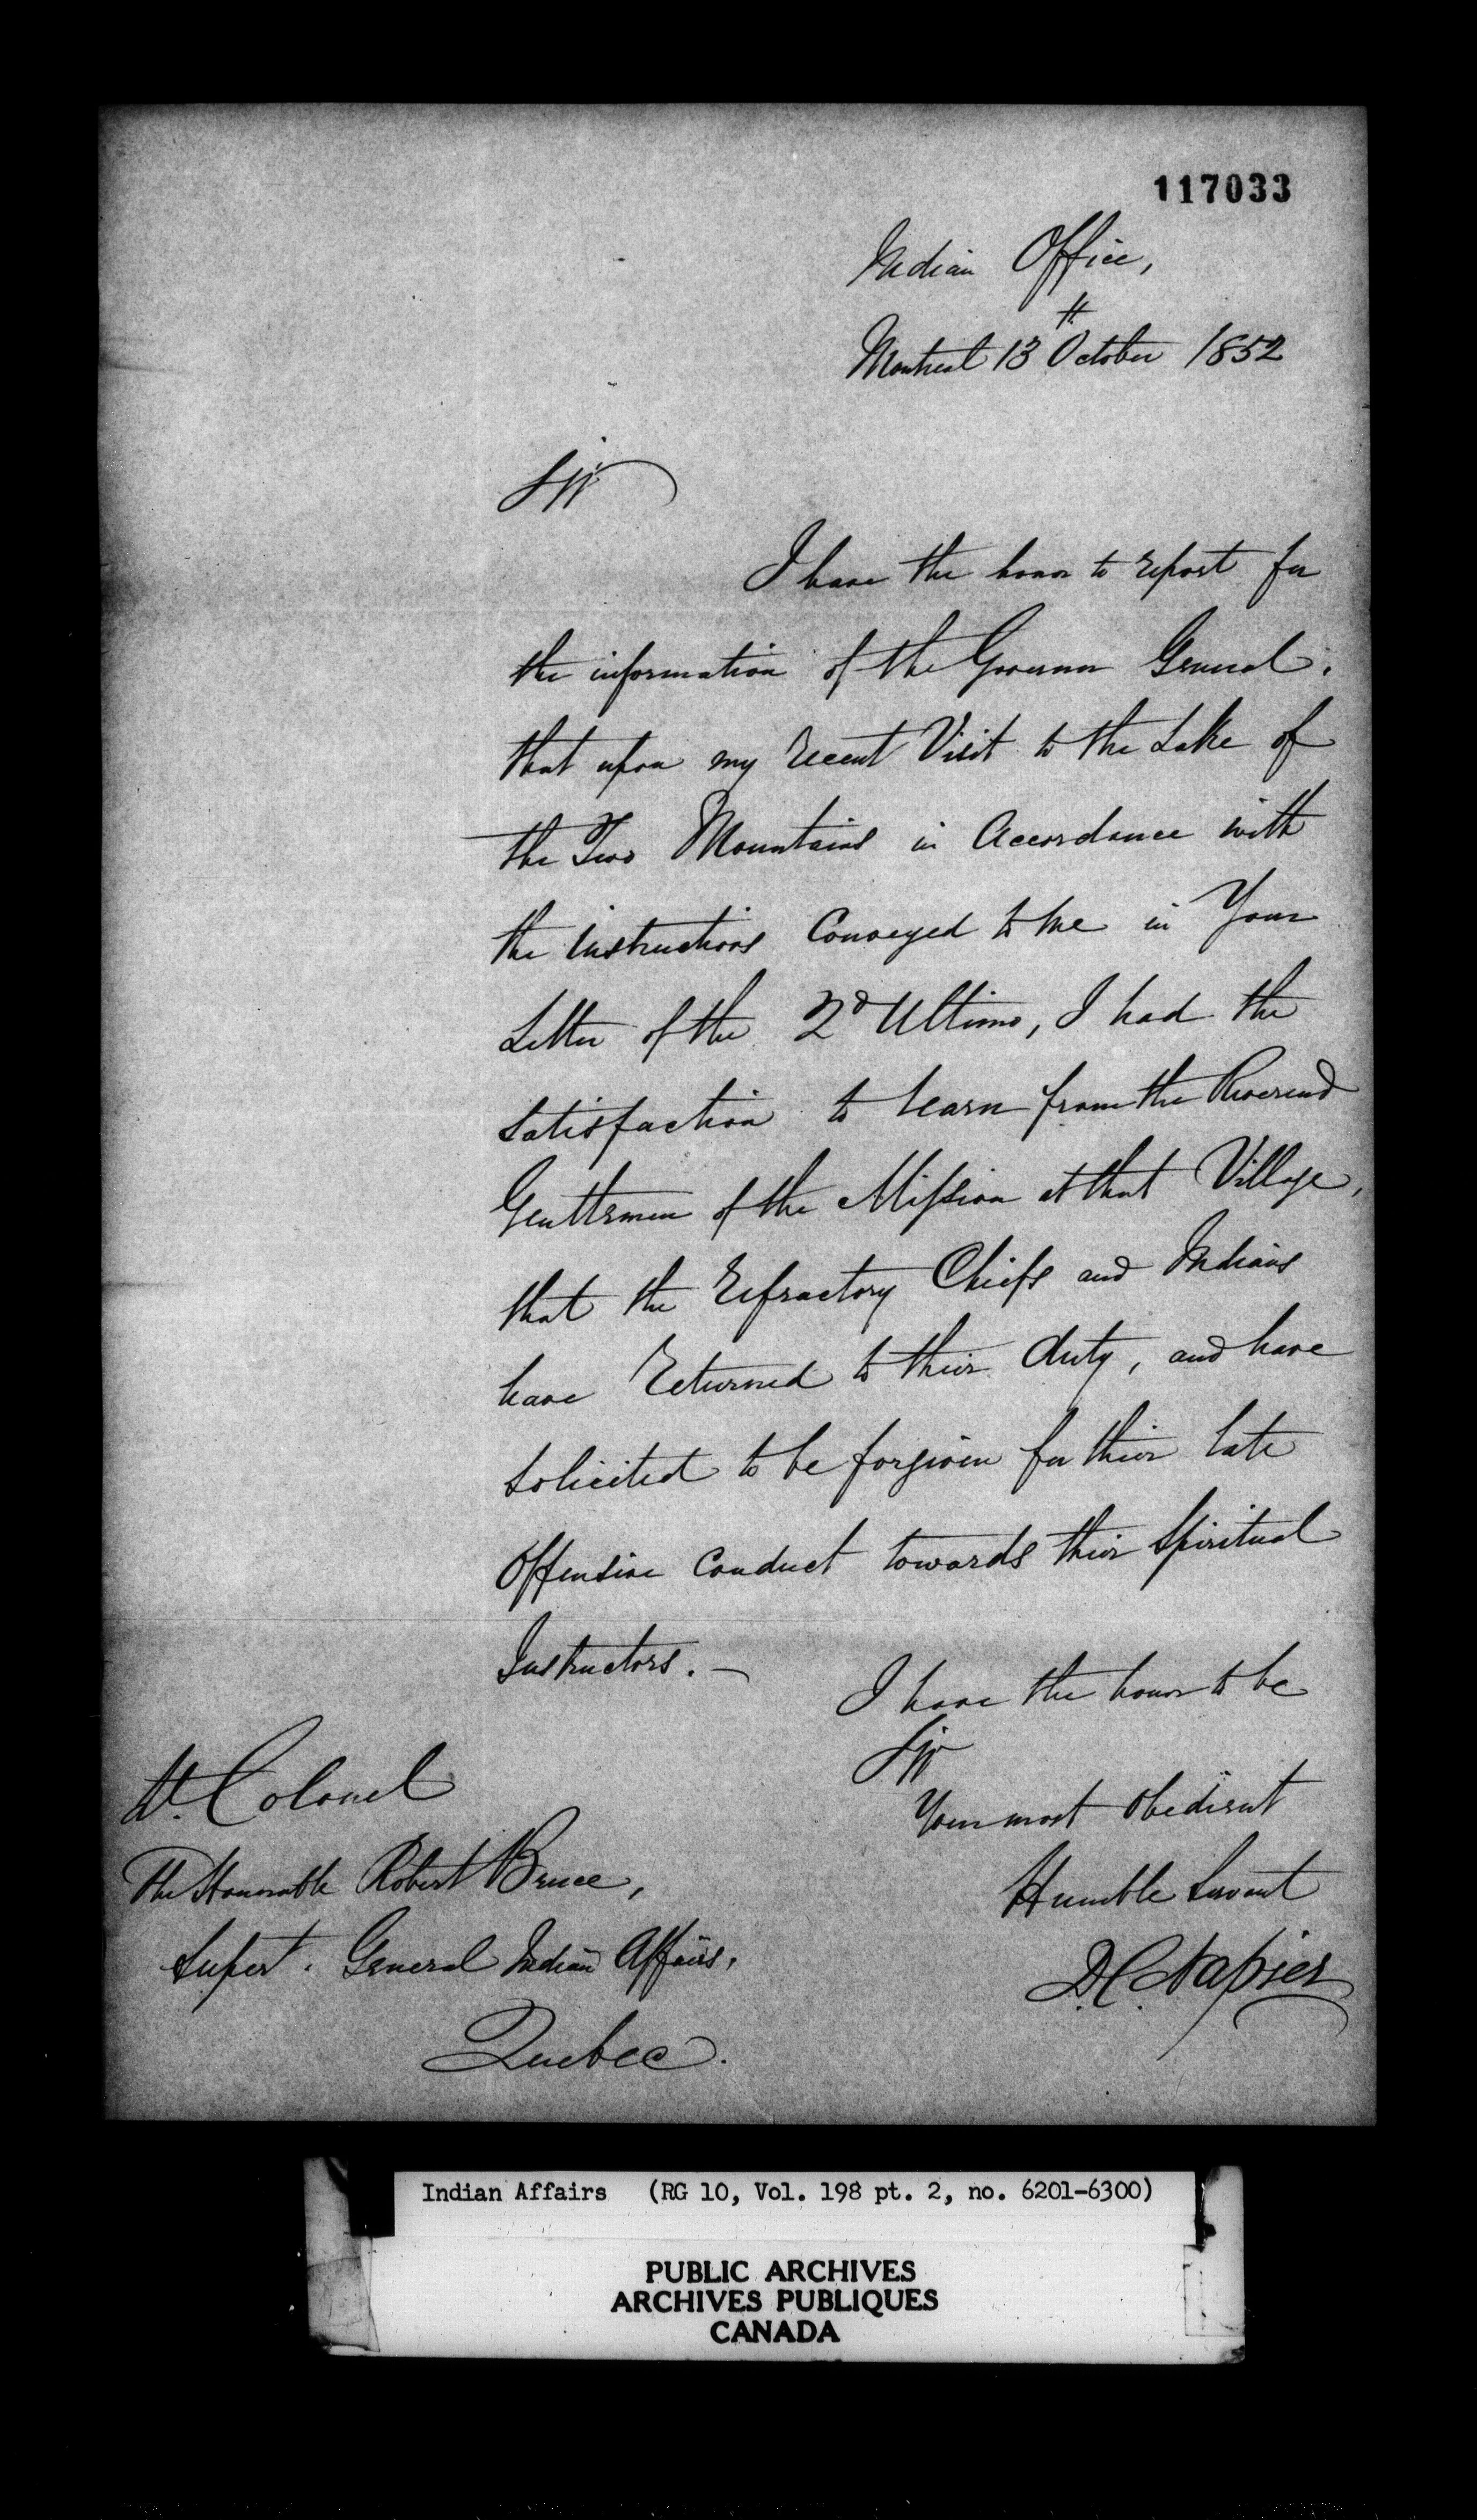 117033
Indian Office,
Montreal 13th October 1852
Sir
I have the honor to report for
the information of the Governor General,
that upon my recent Visit to the Lake of
the Two Mountains in Accordance with
the instructions Conveyed to me in Your
Letter of the 2d Ultimo, I had the
satisfaction to learn from the Reverend
Gentlemen of the Mission at that Village,
that the refractory Chiefs and Indians
have returned to their duty, and have
solicited to be forgiven for their late
Offensive Conduct towards their Spiritual
Instructors. —
I have the honor to be
Sir
Your most obedient
Humble Servant
D.C. Napier
Lt. Colonel
The Honorable Robert Bruce,
Supert. General Indian Affairs,
Quebec.
Indian Affairs (RG 10, Vol. 198 pt. 2, no. 6201-6300)
PUBLIC ARCHIVES
ARCHIVES PUBLIQUES
CANADA